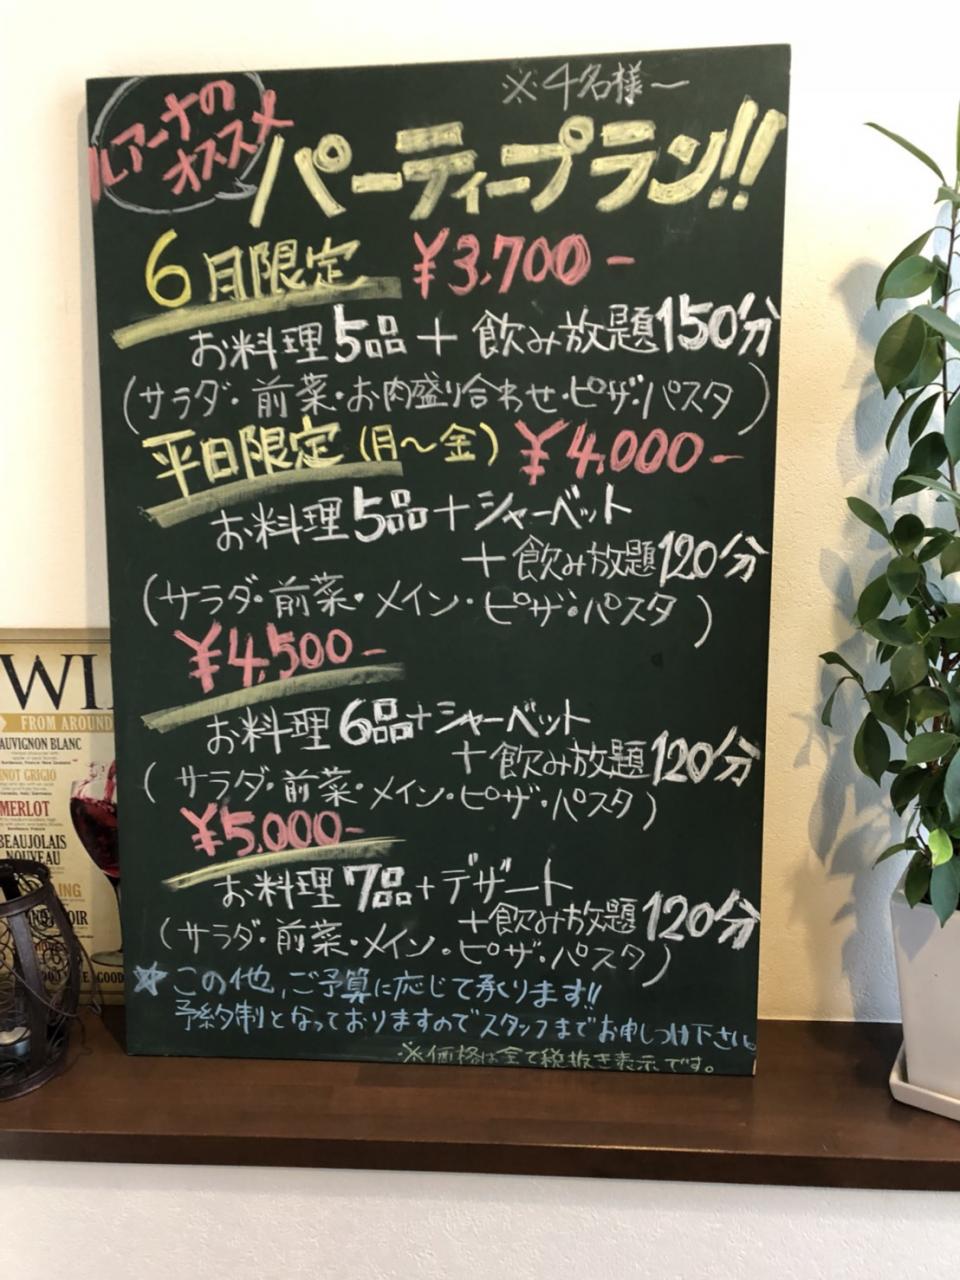 ※4名様〜
ルアーナの
オススメ
パーティープラン!!
6月限定 ¥3,700-
お料理5品+飲み放題150分
(サラダ・前菜・お肉盛り合わせ・ピザ・パスタ)
平日限定(月〜金) ¥4,000-
お料理5品+シャーベット
+飲み放題120分
(サラダ・前菜・メイン・ピザ・パスタ)
¥4,500-
お料理6品+シャーベット
+飲み放題120分
(サラダ・前菜・メイン・ピザ・パスタ)
¥5,000-
お料理7品+デザート
+飲み放題120分
(サラダ・前菜・メイン・ピザ・パスタ)
☆この他、ご予算に応じて承ります!!
予約制となっておりますのでスタッフまでお申しつけ下さい。
※価格は全て税抜き表示です。
WI
FROM AROUND
AUVIGNON BLANC
NOT GRIGIO
MERLOT
BEAUJOLAIS
NOUVEAU
LING
NOIR
GOOD